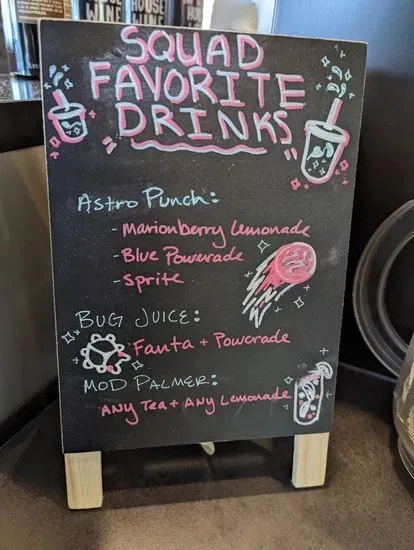 HOUSE
WINE WINE
SQUAD
FAVORITE
DRINKS
Astro Punch:
-Marionberry Lemonade
-Blue Powerade
-Sprite
BUG JUICE:
Fanta + Powerade
MOD PALMER:
ANY TEA + ANY LEMONADE